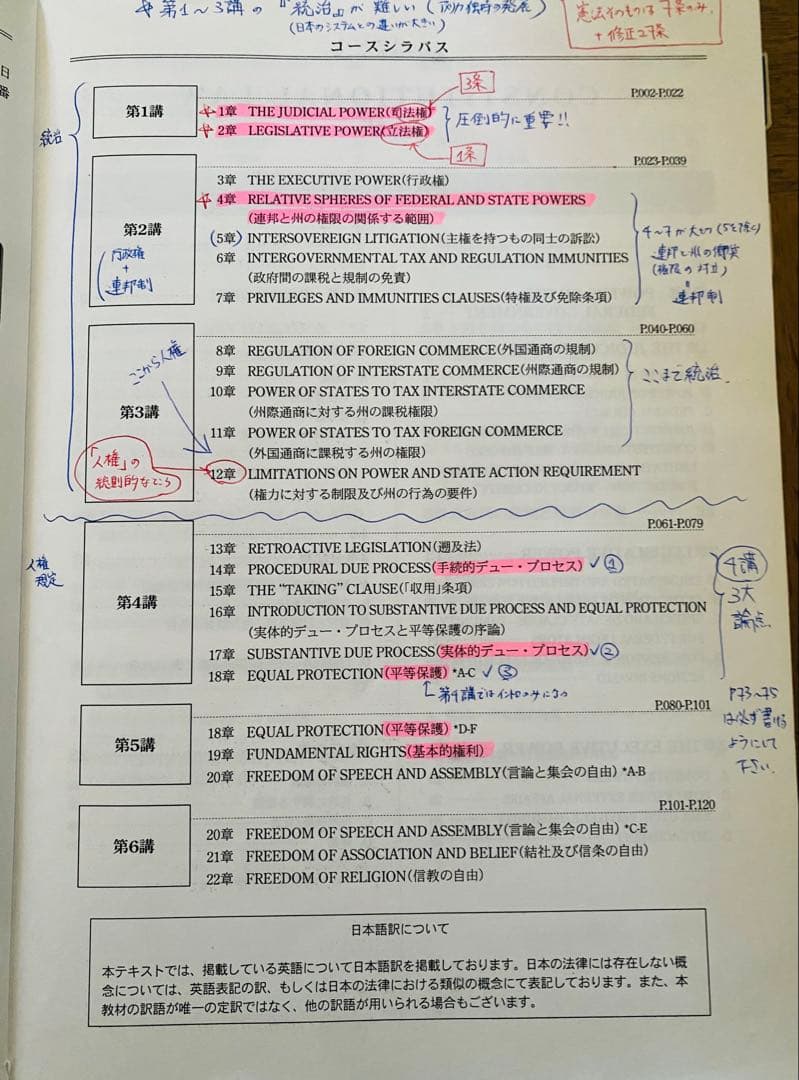 ☆第1～3講の『統治』が難しい(両方独特の発展)
(日本のシステムとの違いが大きい)
憲法そのものは7条のみ.
+修正27条
コースシラバス
日
番
統治
第1講
P.002-P.022
1章 THE JUDICIAL POWER(司法権)
3条
2章 LEGISLATIVE POWER(立法権)
1条
圧倒的に重要!!
第2講
行政権
+
連邦制
P.023-P.039
3章 THE EXECUTIVE POWER(行政権)
4章 RELATIVE SPHERES OF FEDERAL AND STATE POWERS
(連邦と州の権限の関係する範囲)
(5章) INTERSOVEREIGN LITIGATION(主権を持つもの同士の訴訟)
6章 INTERGOVERNMENTAL TAX AND REGULATION IMMUNITIES
(政府間の課税と規制の免責)
7章 PRIVILEGES AND IMMUNITIES CLAUSES(特権及び免除条項)
4～7が大切(5を除く)
連邦と州の衝突
(権限の対立)
連邦制
第3講
ここから人権
「人権」の
総則的なところ
P.040-P.060
8章 REGULATION OF FOREIGN COMMERCE(外国通商の規制)
9章 REGULATION OF INTERSTATE COMMERCE(州際通商の規制)
10章 POWER OF STATES TO TAX INTERSTATE COMMERCE
(州際通商に対する州の課税権限)
11章 POWER OF STATES TO TAX FOREIGN COMMERCE
(外国通商に課税する州の権限)
12章 LIMITATIONS ON POWER AND STATE ACTION REQUIREMENT
(権力に対する制限及び州の行為の要件)
ここまで統治.
人権
規定
第4講
P.061-P.079
13章 RETROACTIVE LEGISLATION(遡及法)
14章 PROCEDURAL DUE PROCESS(手続的デュー・プロセス) ✓①
15章 THE "TAKING" CLAUSE(「収用」条項)
16章 INTRODUCTION TO SUBSTANTIVE DUE PROCESS AND EQUAL PROTECTION
(実体的デュー・プロセスと平等保護の序論)
17章 SUBSTANTIVE DUE PROCESS(実体的デュー・プロセス) ✓②
18章 EQUAL PROTECTION(平等保護) *A-C ✓③
第4講ではイントロのみになる
4講
3大
論点
P73～75
は必ず書ける
ようにして
下さい.
第5講
P.080-P.101
18章 EQUAL PROTECTION(平等保護) *D-F
19章 FUNDAMENTAL RIGHTS(基本的権利)
20章 FREEDOM OF SPEECH AND ASSEMBLY(言論と集会の自由) *A-B
第6講
P.101-P.120
20章 FREEDOM OF SPEECH AND ASSEMBLY(言論と集会の自由) *C-E
21章 FREEDOM OF ASSOCIATION AND BELIEF(結社及び信条の自由)
22章 FREEDOM OF RELIGION(信教の自由)
日本語訳について
本テキストでは、掲載している英語について日本語訳を掲載しております。日本の法律には存在しない概
念については、英語表記の訳、もしくは日本の法律における類似の概念にて表記しております。また、本
教材の訳語が唯一の定訳ではなく、他の訳語が用いられる場合もございます。